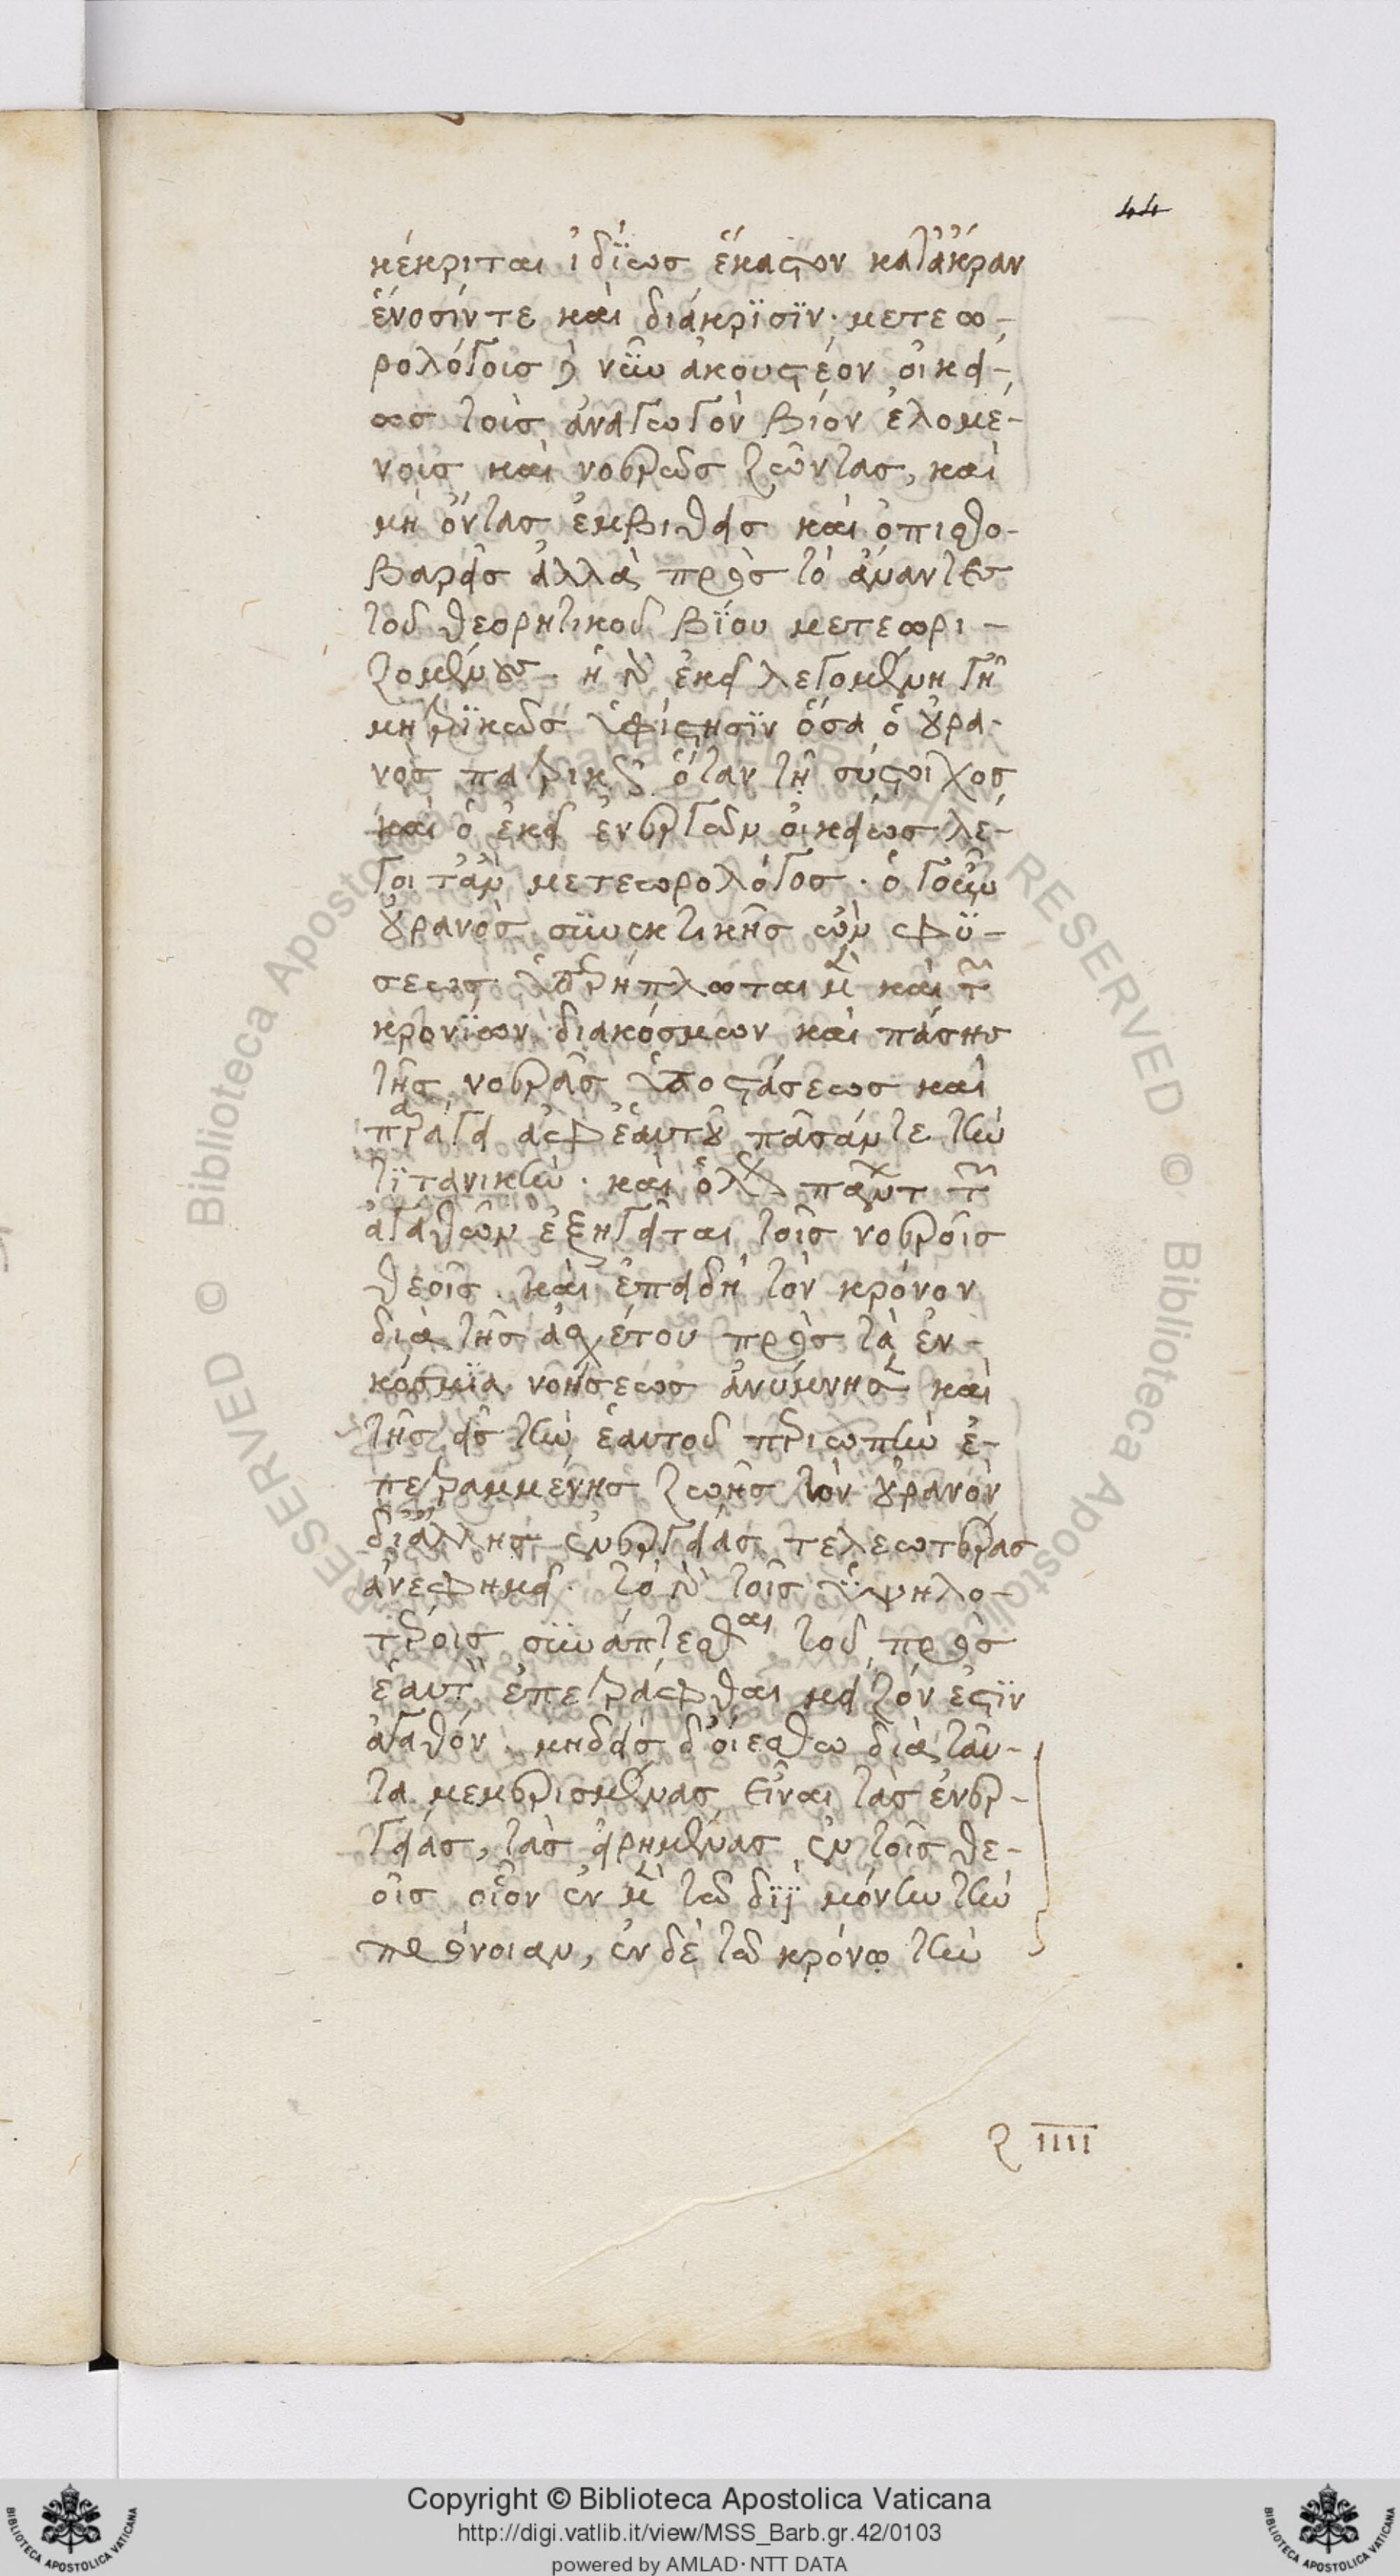 44
κέκριται ἰδίως ἕκαστον κατἀκραν
ἕνοσίντε καὶ διάκρϊσϊν· μετεω-
ρολόγοις νῦν ἀκουστέον οἰκεί-
ως τοῖς ἀναγωγὸν βίον ἑλομέ-
νοις καὶ νοερῶς ζῶντας, καὶ
μὴ ὄντας ἐμβιθεῖς καὶ ὀπισθο-
βαρεῖς ἀλλὰ πρὸς τὸ ἄναντες
τοῦ θεορητικοῦ βΐου μετεωρι-
ζομένους. ἡ γὰρ ἐκεῖ λεγομένη γῆ
μητρϊκῶς ὑφίστησϊν ὅσα ὁ οὐρα-
νὸς πατρικῶς ὅταν τῇ σύστοιχος
καὶ ὁ ἐκεῖ ἐνεργῶν οἰκείως λέ-
γοιτἂν μετεωρολόγος. ὁ γοῦν
οὐρανὸς συνεκτικῆς ὢν φύ-
σεως ὑπερήπλωται μὲν καὶ τῶν
κρονΐων διακόσμων καὶ πάσης
τῆς νοερᾶς ὑποστάσεως καὶ
παράγει ἀφἑαυτοῦ πᾶσάντε τὴν
τϊτανικὴν. καὶ
ἀγαθῶν ἐξηγεῖται τοῖς νοεροῖς
θεοῖς. καὶ ἐπειδὴ τὸν κρόνον
διὰ τῆς ἀσχέτου πρὸς τὰ ἐν-
κόσμϊα νοήσεως ἀνύμνησε καὶ
τῆς εἰς τὴν ἑαυτοῦ περιωπὴν ἐ-
πεστραμμένης ζωῆς τὸν οὐρανὸν
διἄλλης ἐνεργείας τελεωτέρας
ἀνεφημεῖ. τὸ γὰρ τοῖς ὑψηλο-
τέροις συνάπτεσθαι τοῦ πρὸς
ἑαυτὸν ἐπεστράφθαι μεῖζόν ἐστϊν
ἀγαθόν. μηδεὶς δ'οἰέσθω διὰ ταύ-
τα μεμερισμένας εἶναι τὰς ἐνερ-
γείας, τὰς εἰρημένας ἐν τοῖς θε-
οῖς οἷον ἐν μὲν τῷ διῒ μόνην τὴν
πρόνοιαν, ἐν δὲ τῷ κρόνῳ τὴν
IIII
Copyright © Biblioteca Apostolica Vaticana
http://digi.vatlib.it/view/MSS_Barb.gr.42/0103
powered by AMLAD · NTT DATA